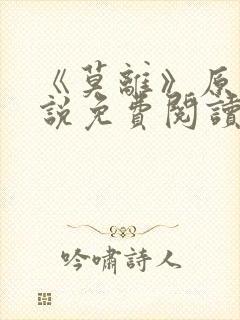 《莫離》原
說免費閱讀
吟嘯詩人